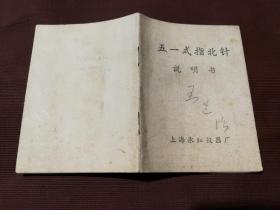 五一式指北针
说明书
上海永红仪器厂